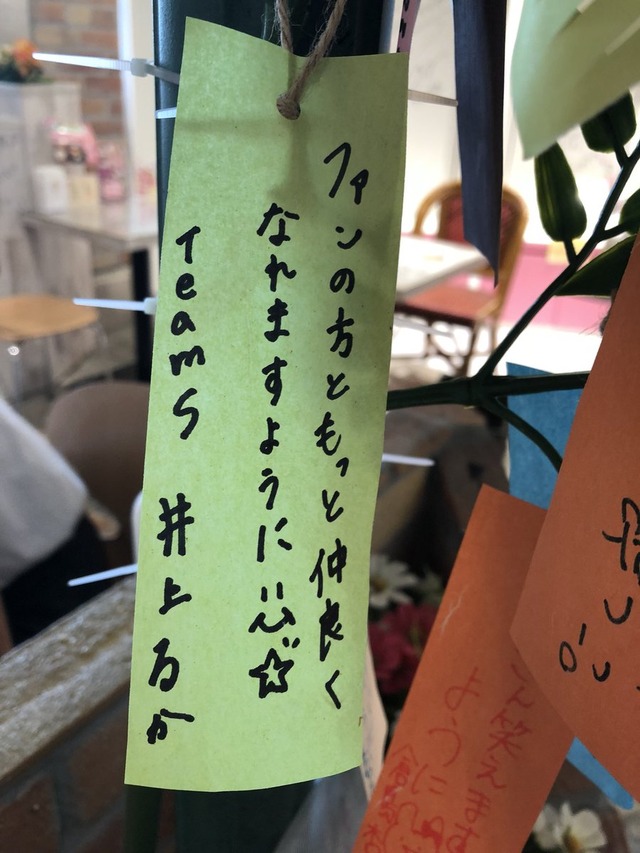 ファンの方ともっと仲良く
なれますように
TeamS 井上るか
笑えます
ように